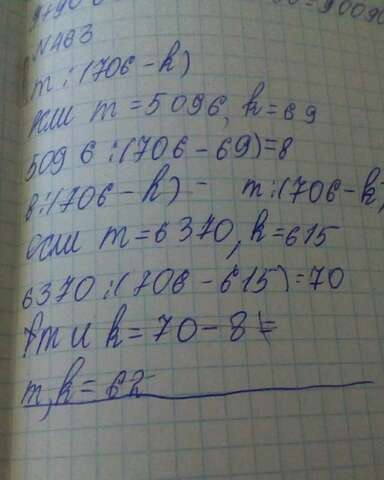 N483
m : (706 - k)
если m = 5096, k = 69
5096 : (706 - 69) = 8
8 : (706 - k) - m : (706 - k)
если m = 6370, k = 615
6370 : (706 - 615) = 70
m и k = 70 - 8 =
m, k = 62